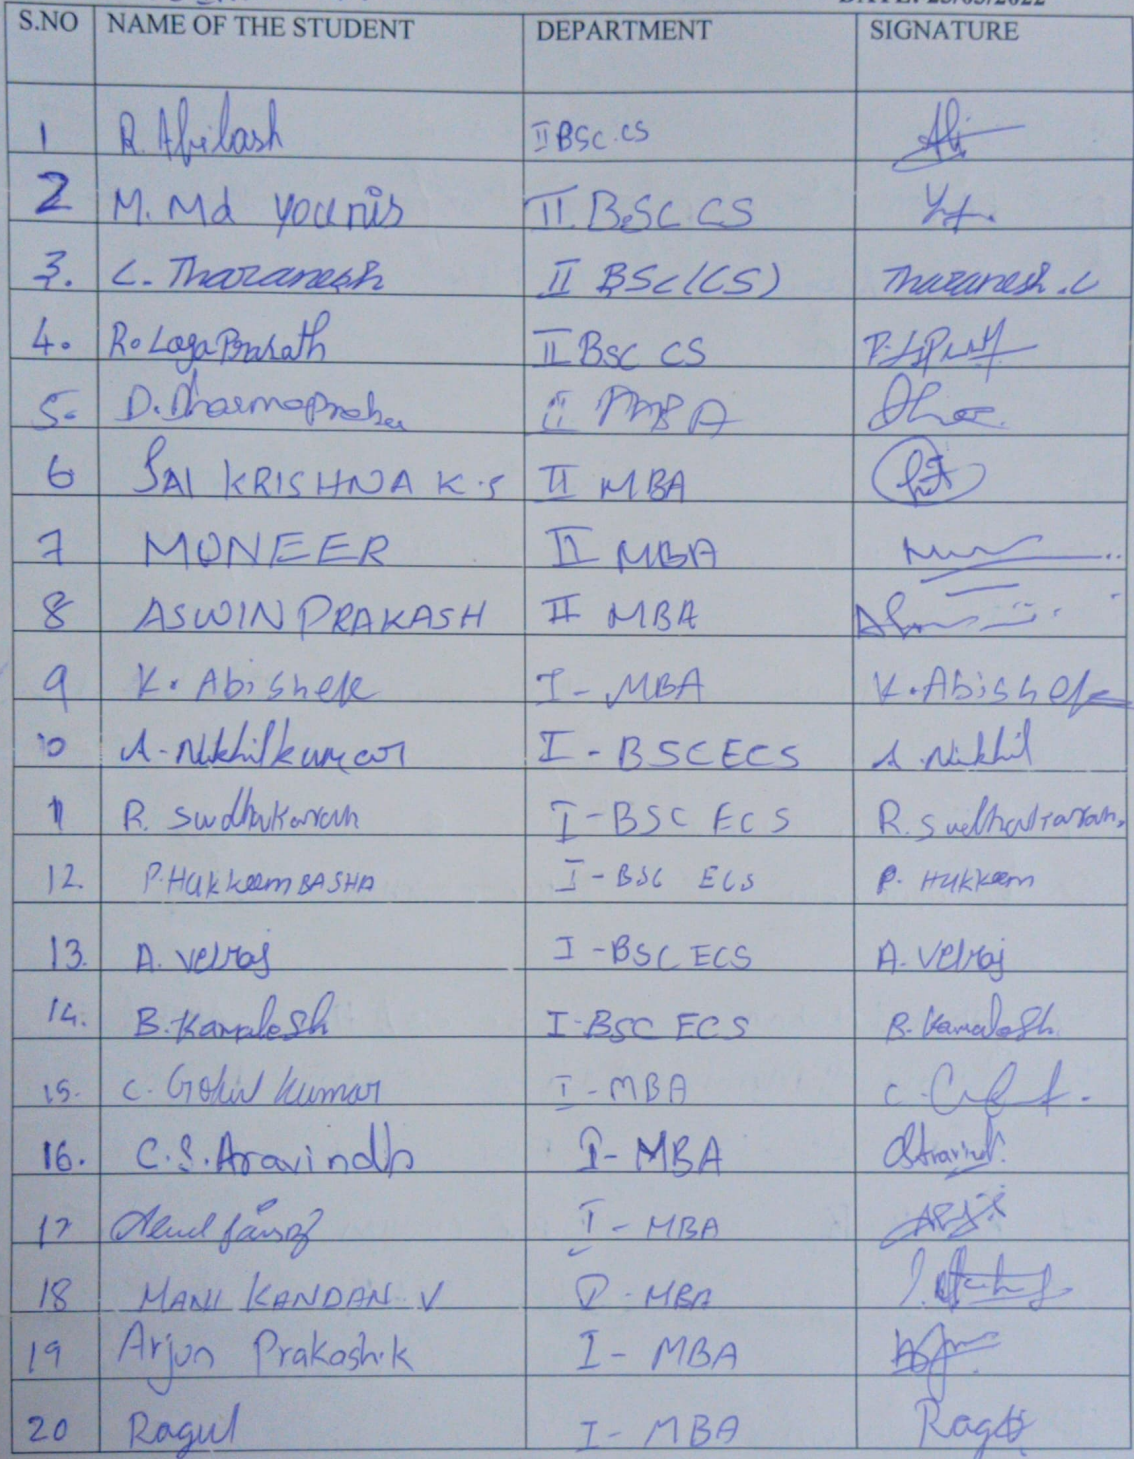 S.NO NAME OF THE STUDENT DEPARTMENT SIGNATURE
1 R. Abilash II BSC.CS Abi
2 M. Md younis II. BSC CS
3. C. Tharanesh II BSc (CS) Tharanesh .C
4. R. LogaPrasath II BSC CS
5. D. Dharmaprabu II MBA
6 SAI KRISHNA K.S II MBA
7 MONEER II MBA
8 ASWIN PRAKASH II MBA
9 K. Abishek I - MBA K. Abishek
10 A. Nikhilkumar I - BSCECS A. Nikhil
11 R. Sudhakaran I - BSC ECS R. Sudhakaran.
12. P. HUKKEEM BASHA I - BSC ECS P. HUKKEEM
13. A. Velraj I - BSC ECS A. Velraj
14. B. Kamalesh I - BSC ECS B. Kamalesh
15. C. Gokul Kumar I - MBA
16. C.S. Aravindh I - MBA
17 I - MBA
18 MANI KANDAN V I - MBA
19 Arjun Prakash.k I - MBA
20 Ragul I - MBA